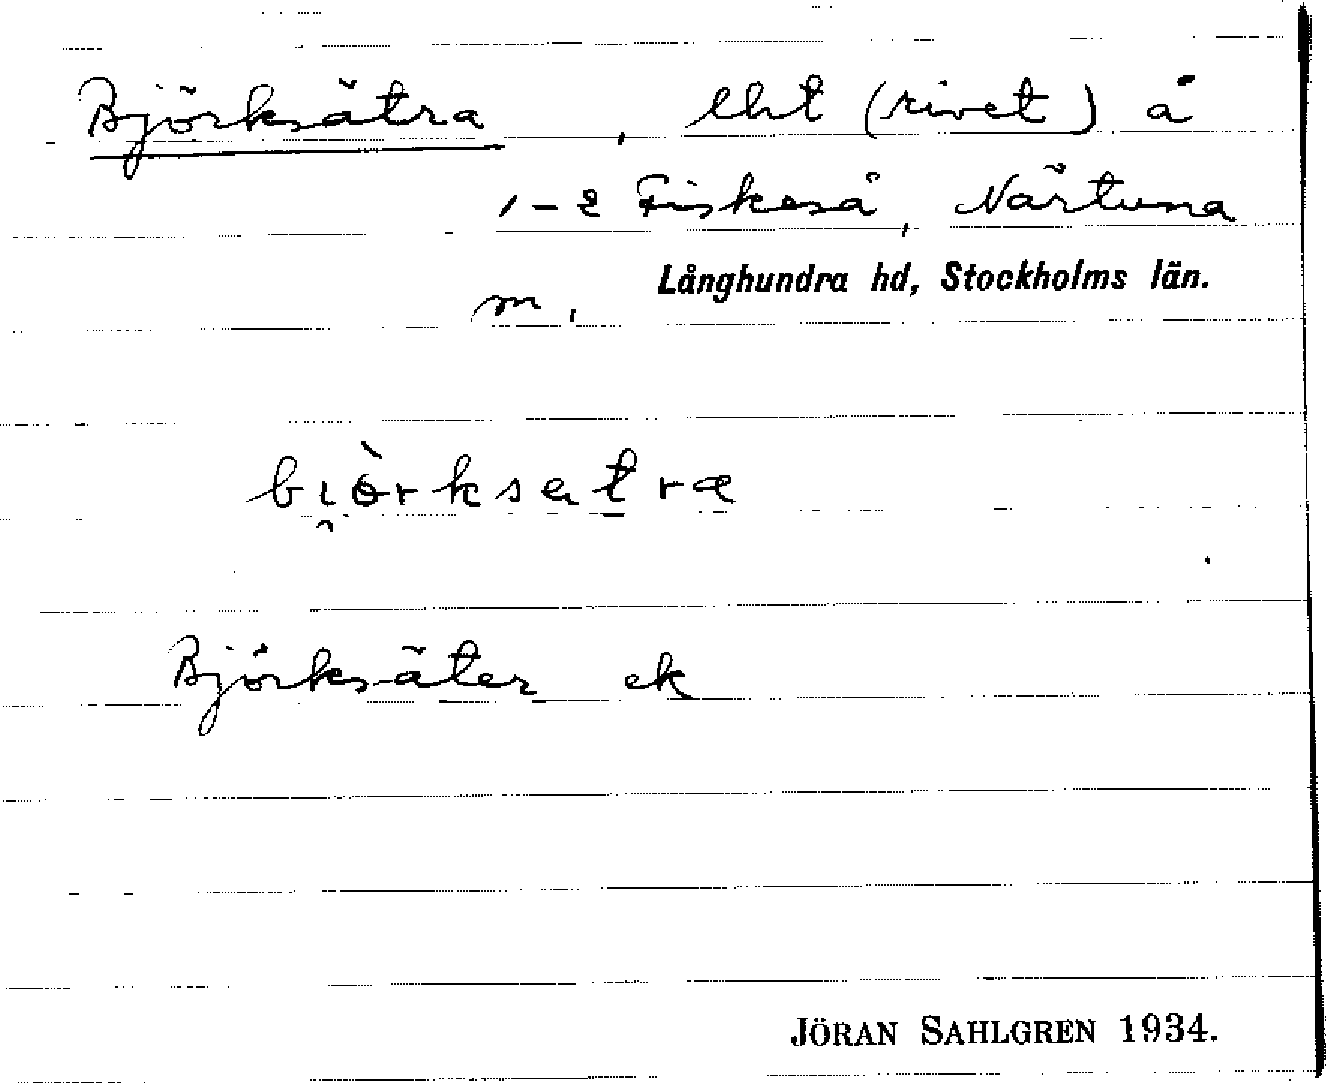 Björksätra, lht (rivet) å
1–2 Fiskeså, Närtuna
Långhundra hd, Stockholms län.
m.
bi̯òrksatra
Björksäter ek
JÖRAN SAHLGREN 1934.